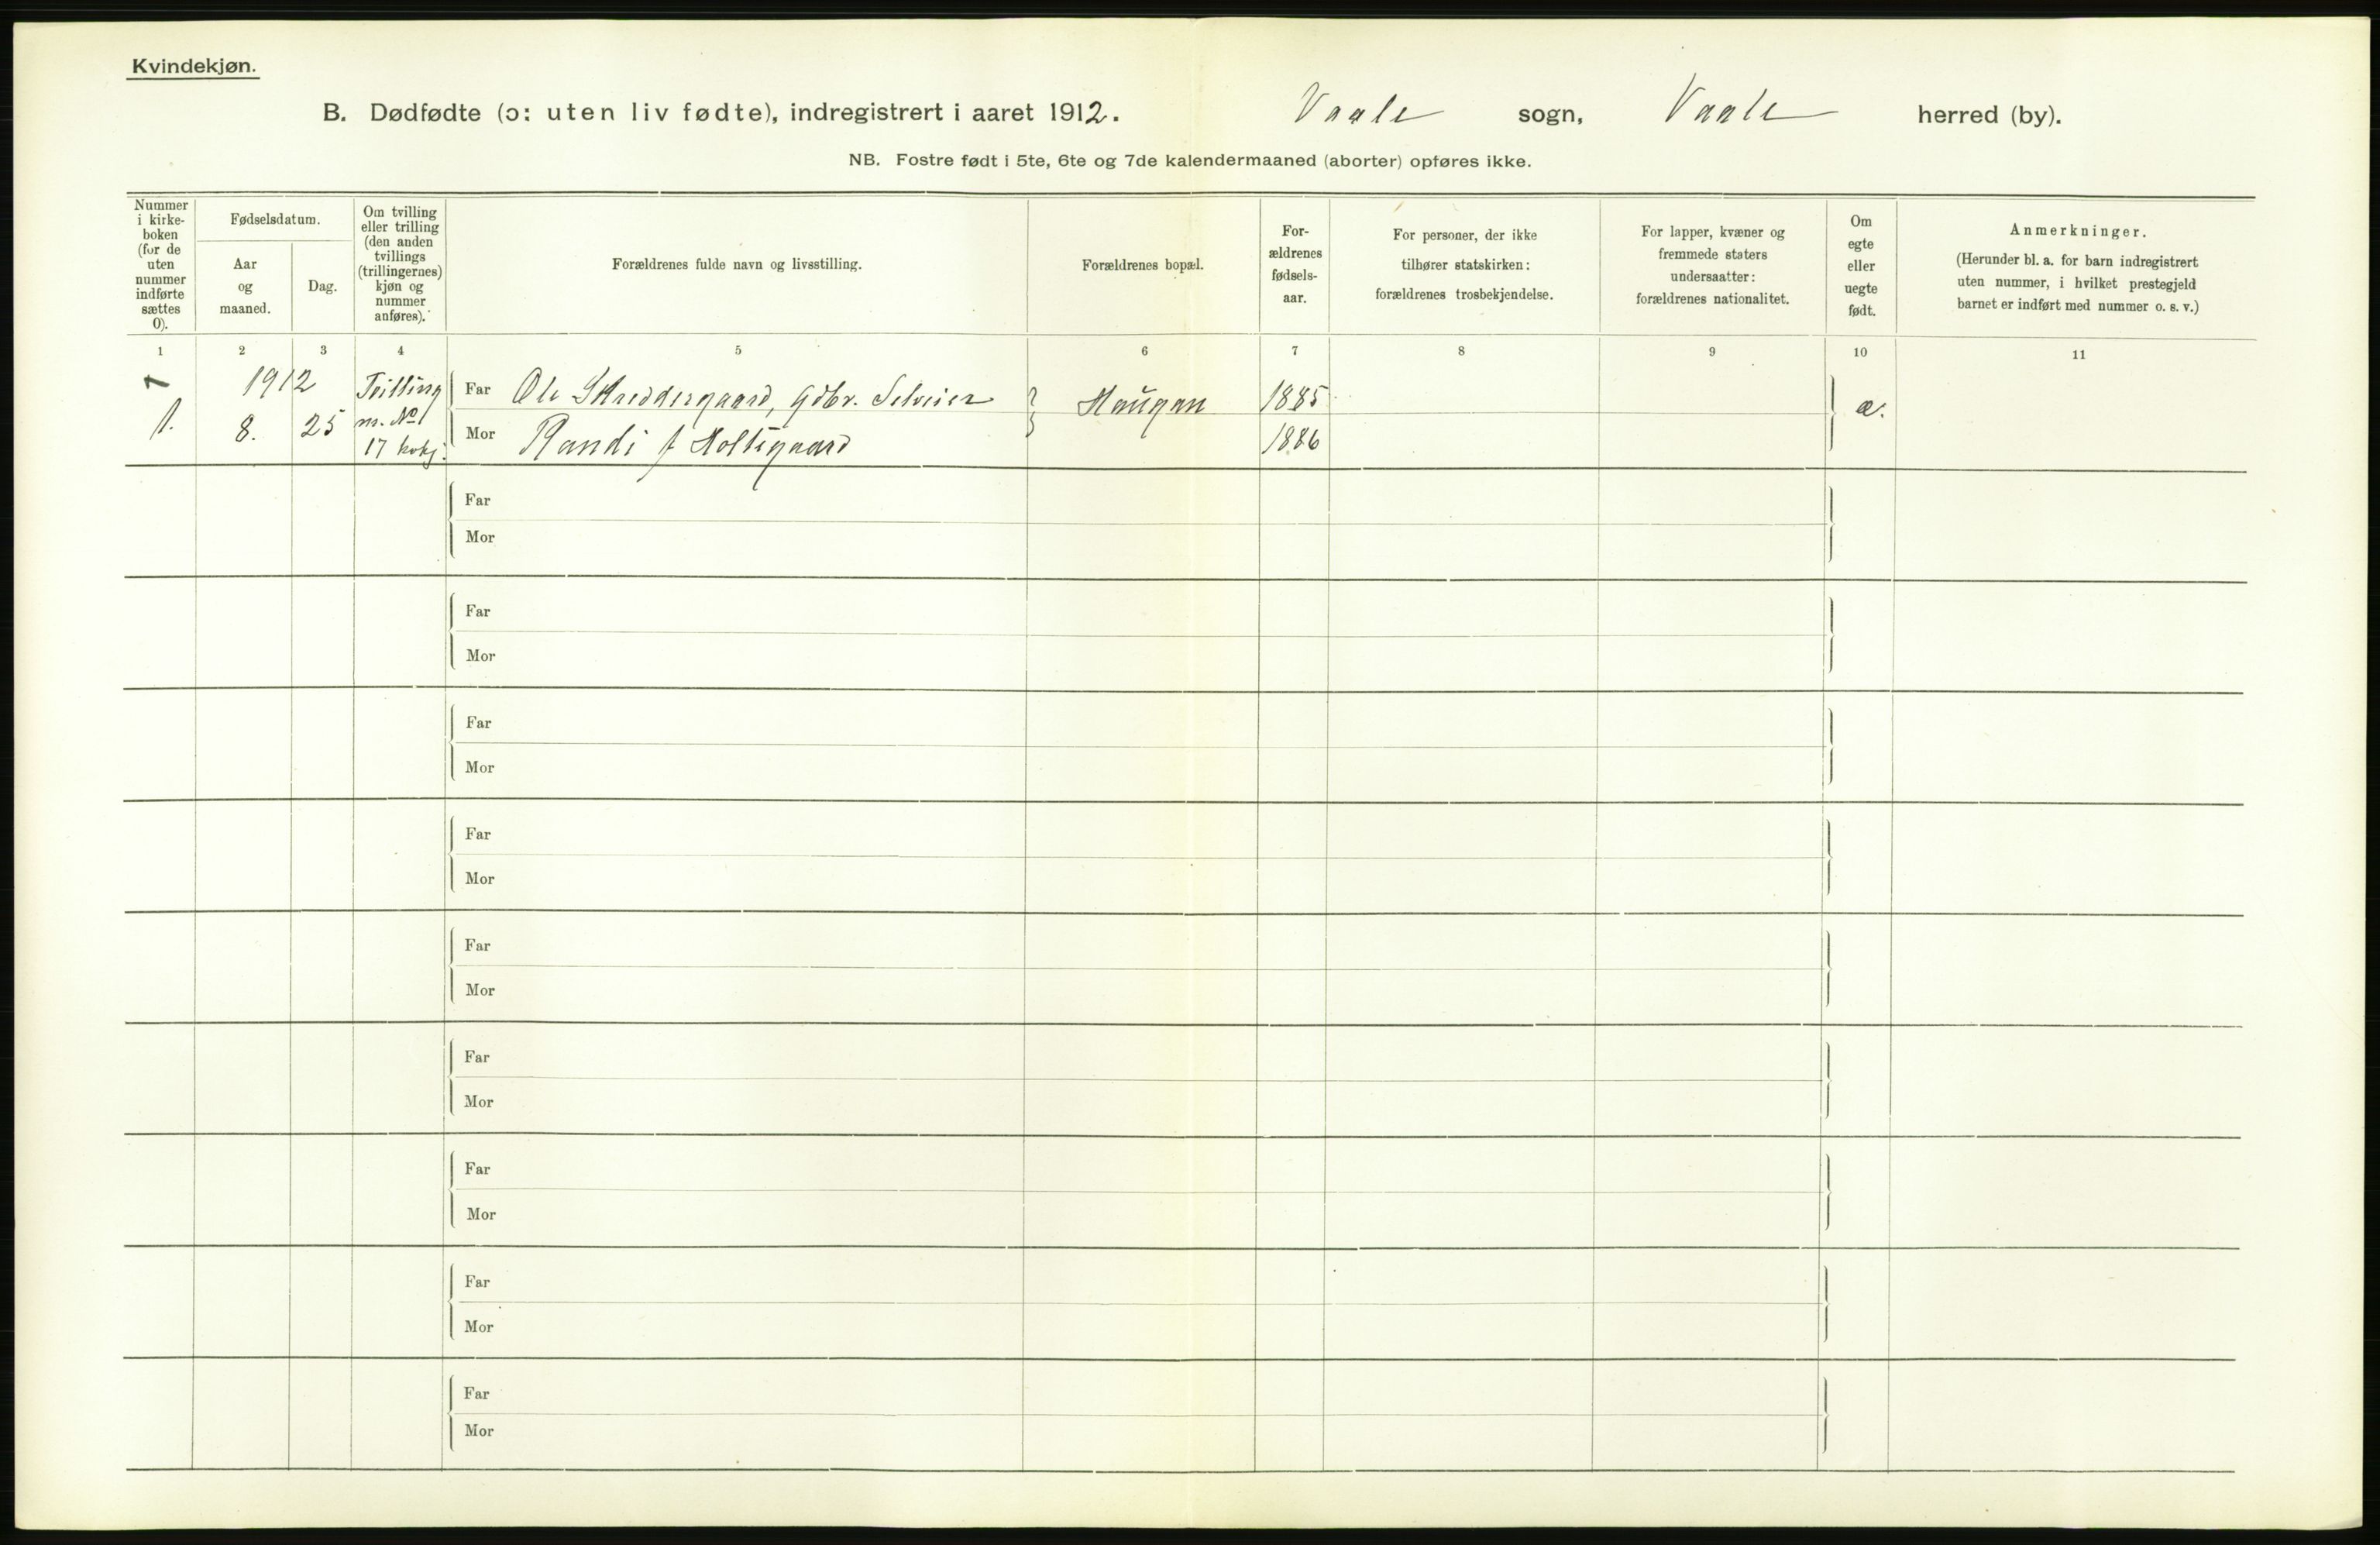 Kvindekjøn.
B. Dødfødte (ɔ: uten liv fødte), indregistrert i aaret 1912. Vaale sogn, Vaale herred (by).
NB. Fostre født i 5te, 6te og 7de kalendermaaned (aborter) opføres ikke.
Nummer
i kirke-
boken
(for de
uten
nummer
indførte
sættes
0).
Fødselsdatum.
Aar
og
maaned.
Dag.
Om tvilling
eller trilling
(den anden
tvillings
(trillingernes)
kjøn og
nummer
anføres).
Forældrenes fulde navn og livsstilling.
Forældrenes bopæl.
For-
ældrenes
fødsels-
aar.
For personer, der ikke
tilhører statskirken:
forældrenes trosbekjendelse.
For lapper, kvæner og
fremmede staters
undersaatter:
forældrenes nationalitet.
Om
egte
eller
uegte
født.
Anmerkninger.
(Herunder bl. a. for barn indregistrert
uten nummer, i hvilket prestegjeld
barnet er indført med nummer o. s. v.)
1 2 3 4 5 6 7 8 9 10 11
1912
1. 8. 25
Tvilling
m. No
17
Far Ole Skreddergaard, gdbr. Selveier
Mor Randi f Holtsgaard
Haugan
1885
1886
æ.
Far
Mor
Far
Mor
Far
Mor
Far
Mor
Far
Mor
Far
Mor
Far
Mor
Far
Mor
Far
Mor